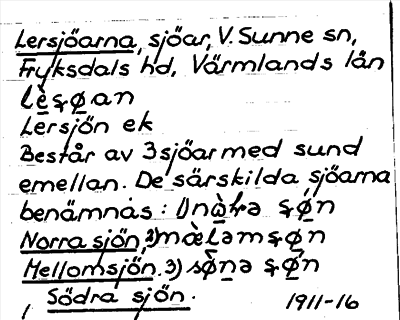 Lersjöarna, sjöar, V. Sunne sn,
Fryksdals hd, Värmlands län
lè̱ʂø̱an
Lersjön ek
Består av 3 sjöar med sund
emellan. De särskilda sjöarna
benämnas: 1) nò̱ɽə ʂǿ̱n
Norra sjön, 2) mæ̀ləm ʂø̱n
Mellomsjön. 3) sø̱̀nə ʂǿ̱n
Södra sjön.
1911-16